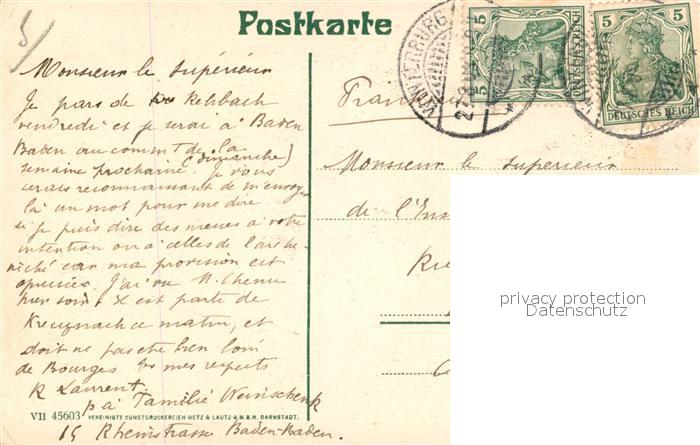 5
Postkarte
WINTERBURG
5
5
DEUTSCHES REICH
DEUTSCHES REICH
Monsieur le supérieur
Je pars de Rehbach
vendredi et je serai à Baden
Baden au commt de la
semaine prochaine (dimanche)
Je vous
serais reconnaissant de m'envoyer
là un mot pour me dire
si je puis dire des messes à votre
intention ou à celles de l'archevêché
car ma provision est
épuisée. J'ai vu M. Chenu
hier soir. X est parti de
Kreuznach ce matin, et
doit ne pas être bien loin
de Bourges mes respects
R Laurent
p à Familie Weinschenk
15 Rheinstrasse Baden-Baden.
Monsieur le superieur
de l'Ins
privacy protection
Datenschutz
VII 45603 VEREINIGTE KUNSTDRUCKEREIEN METZ & LAUTZ G.M.B.H. DARMSTADT.